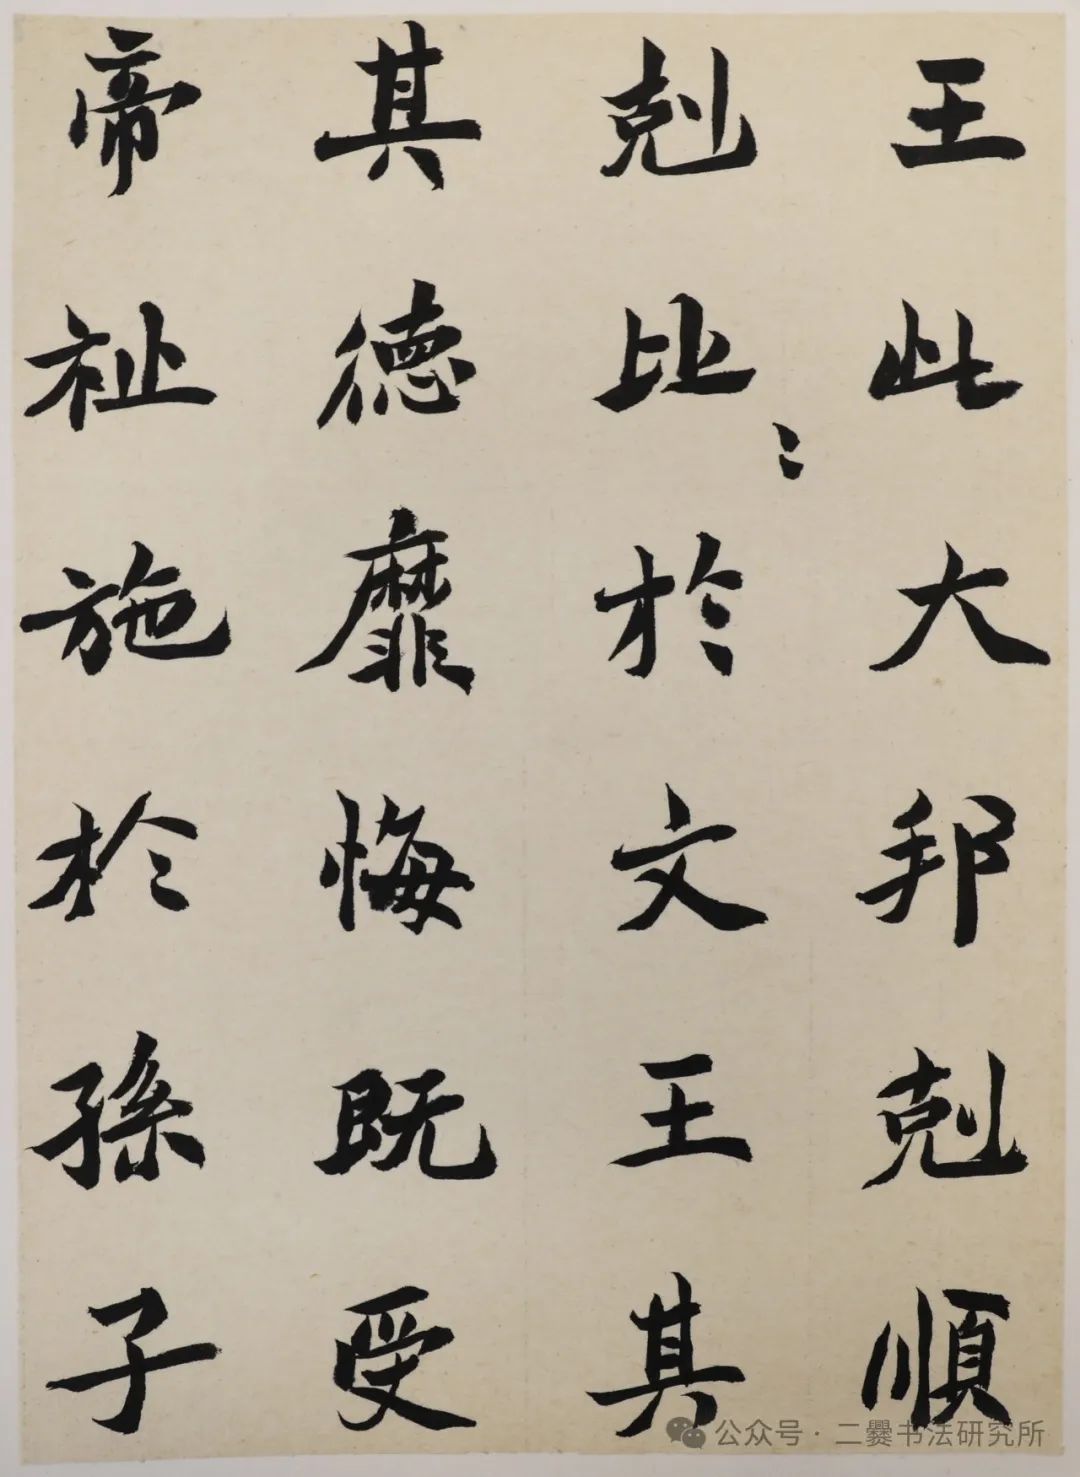 王此大邦剋順
剋比〻於文王其
其德靡悔既受
帝祉施於孫子
公众号·二爨书法研究所